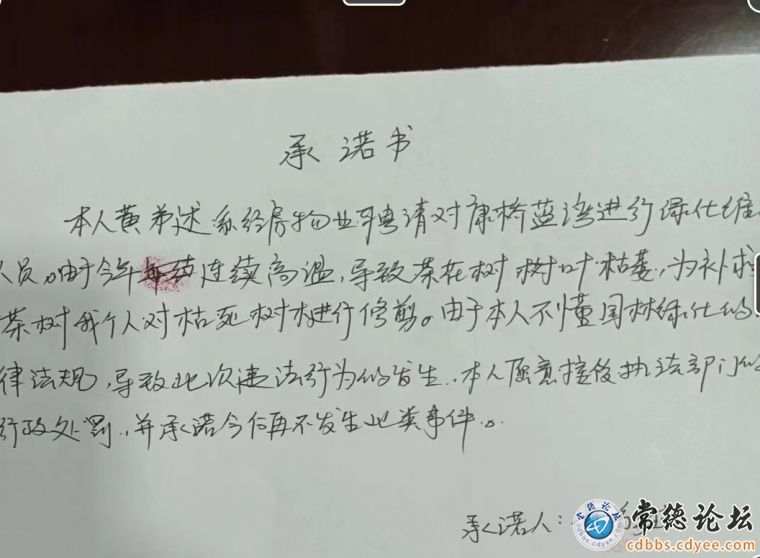 承诺书
本人黄弟述系经房物业聘请对康桥蓝湾进行绿化维
人员。由于今年连续高温，导致茶花树树叶枯萎，为补求
茶树我个人对枯死树枝进行修剪。由于本人不懂园林绿化的
律法规，导致此次违法行为的发生，本人愿意接受执法部门的
行政处罚，并承诺今后再不发生此类事件。
承诺人：
常德论坛
cdbbs.cdyee.com